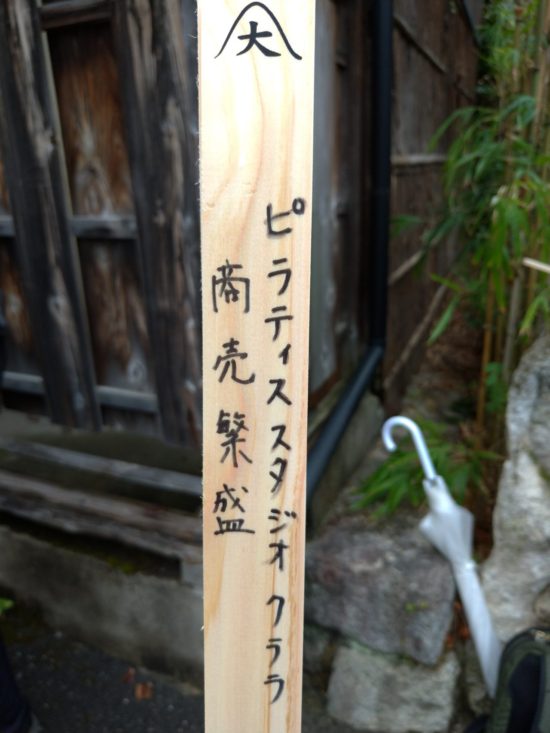 大
ピラティススタジオ クララ
商売繁盛